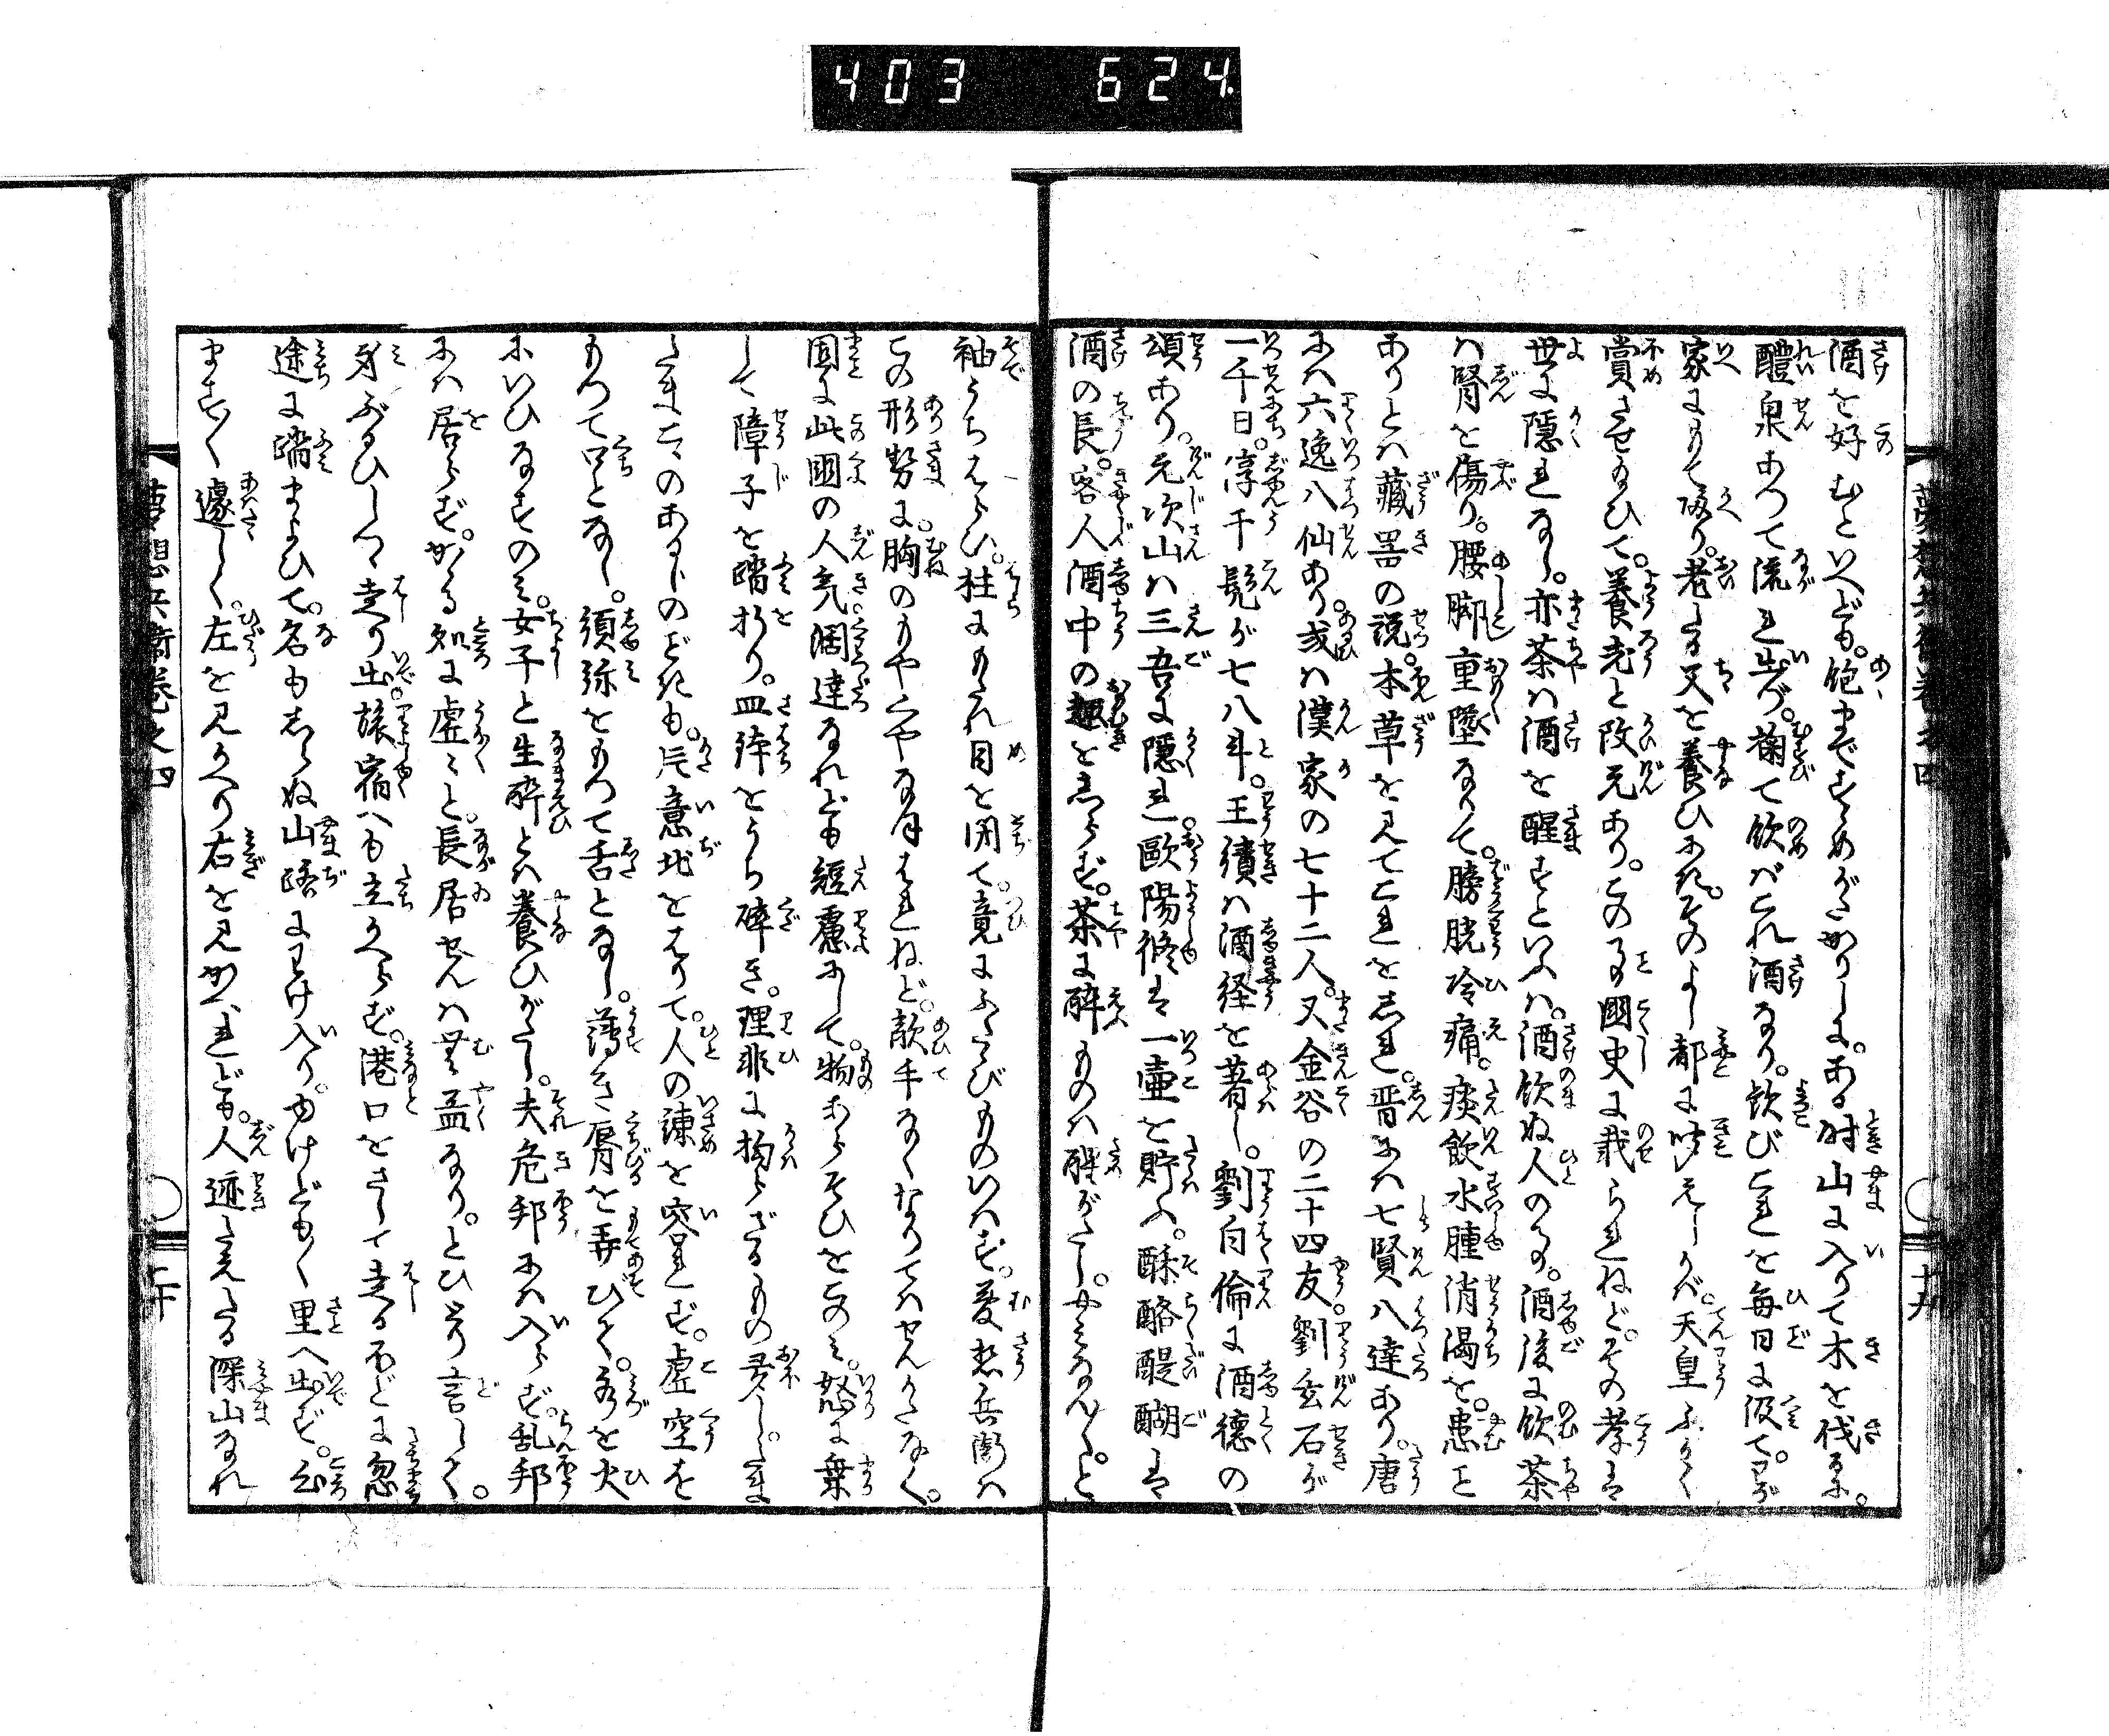 403 624
酒を好むといへども。飽まですゝめがたかりしに。ある時山に入りて木を伐るに。
醴泉あつて流れ出づ。掬て飲バこれ酒なり。歓びこれを毎日に汲て。わが
家にもて帰り。老たる父を養ひにき。そのよし都に聞えしかバ。天皇ふかく
賞させ給ひて。養老と改元あり。この事國史に載られねど。その孝は
世に隠れなし。亦茶ハ酒を醒すといへバ。酒飲ぬ人の事。酒後に飲茶
ハ腎を傷り。腰脚重墜なりて。膀胱冷痛。痰飲水腫消渇を。患と
ありとハ藏器の説。本草を見てこれをしれ。晋にハ七賢八達あり。唐
にハ六逸八仙あり。或ハ漢家の七十二人。又金谷の二十四友。劉玄石が
一千日。淳于髡が七八斗。王績ハ酒経を著し。劉白倫に酒徳の
頌あり。元次山ハ三吾に隱れ。歐陽脩は一壷を貯ふ。酥酪醍醐は
酒の長。客人酒中の趣をしらず。茶に醉ものハ醒がたし。やみなん〳〵。と
袖うちはらひ。柱にもたれ目を閉て。竟にふたゝびものいはず。夢想兵衛ハ
この形勢に。胸のもやくやなほはれねど。敵手なくなりてハせんかたなく。
固に此國の人気。濶達なれども短慮にして。物あらそひをこのみ。怒に乗
して障子を踏折り。皿鉢をうち碎き。理非に拘らざるもの多し。たま
たまこゝのあるじのごときも。片意地をはりて。人の諫を容れず。虚空を
もつて口となし。須弥をもつて舌となし。薄き唇を弄ひて。水を火
にいひなすのミ。女子と生醉とハ養ひがたし。夫危邦にハ入らず。乱邦
にハ居らず。かゝる処に虚々と。長居せんハ無益なり。とひとり言して。
身ぶるひしつゝ走り出。旅宿へも立かへらず。港口をさして走るほどに忽
途に踏まよひて。名もしらぬ山路にわけ入り。ゆけども〳〵里へ出ず。こゝろ
ます〳〵遽しく。左を見かへり右を見かへれども。人迹たえたる深山なれ
夢想兵衞卷之四
十九
夢想兵衞卷之四
二十